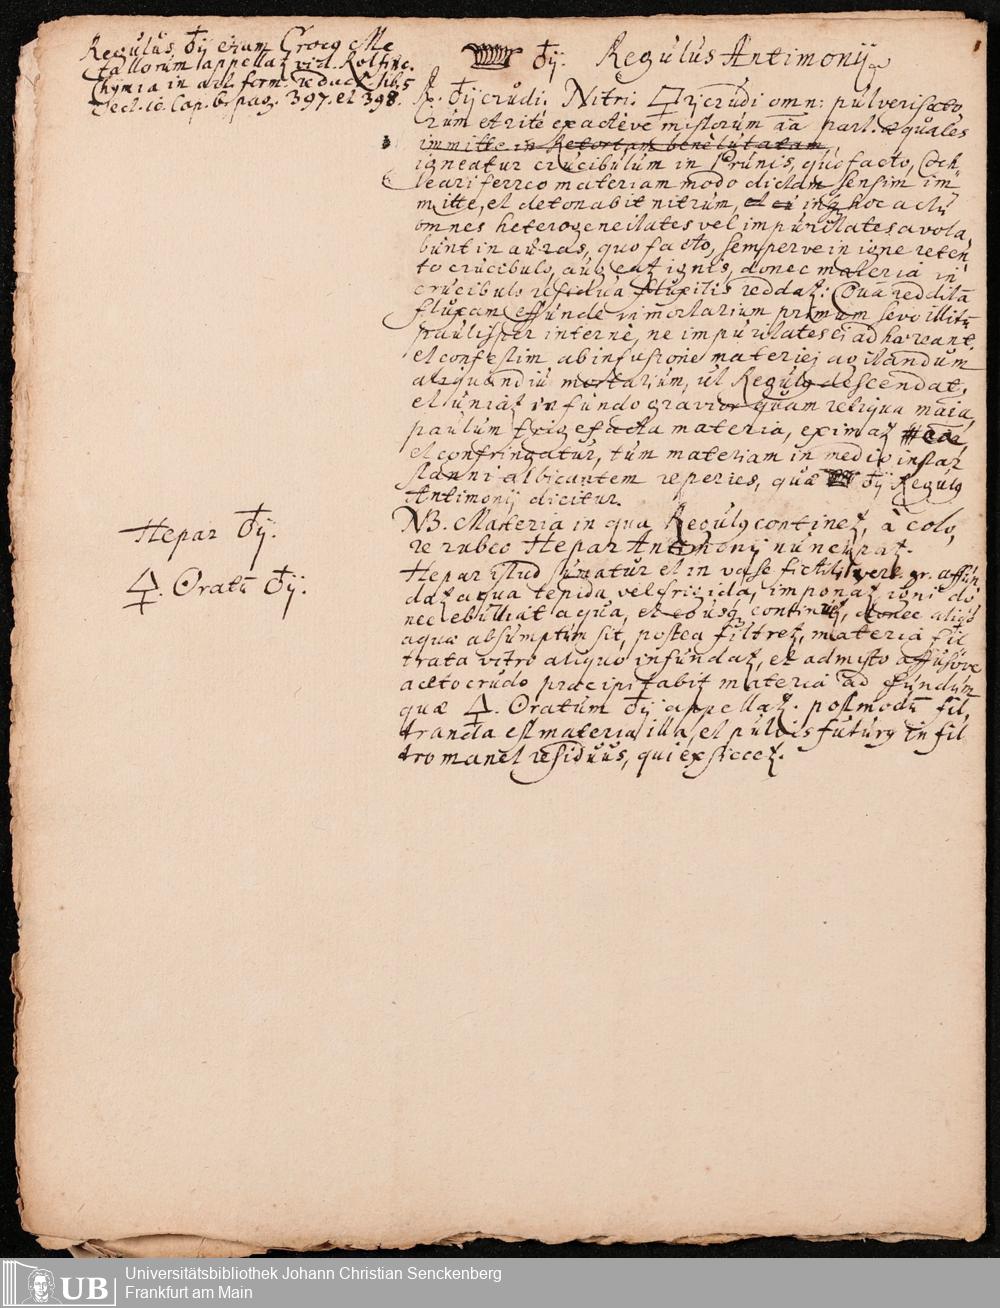 Regulus ♁ij etiam Crocq Me
tallorum appellat vid. Rolfinc.
Chymia in art. form. redact. lib. 5
Sect. 10. Cap. 6. pag. 397. et 398.
♁ij. Regulus Antimonij
℞. ♁ij crudi. Nitri. 🜿ri crudi omn: pulverisato
rum et rite exacteve mistorum aa part. æquales
immitte in Retortam bene lutatam,
igneatur crucibulum in Prunis, quo facto, Coch
leari ferreo materiam modo dictam sensim im
mitte, et detonabit nitrum, inq hoc actu
omnes heterogeneitates vel impuritates avola
bunt in auras, quo facto, semperve in igne reten
to crucibulo, augeat ignis, donec materia in
crucibulo residua fluxilis reddat: Quâ redditâ
fluxam effunde in mortarium primum sevo illitũ
paulisper internè, ne impuritates ei adhæreant,
et confestim ab infusione materiej agitandum
aliquandiu mortarium, ut Regulq descendat,
et uniat in fundo gravior quam reliqua maia,
paulum frigefacta materia, eximat
et confringatur, tum materiam in medio instar
stanni albicantem reperies, quæ ♁ij Regulq
Antimonij dicitur.
NB. Materia in qua Regulq continet, à colo,
re rubeo Hepar Antimonij nuncupat.
Hepar ♁ij.
Hepar istud sumatur et in vase fictili gr. affun
🜍. Oratũ ♁ij.
dat aqua tepida vel frigida, imponat igni do
nec ebulliat aqua, et eousq continuet, donec aliqd
aquæ absumptum sit, postea filtret, materia fil
trata vitro aliquo infundat, et admisto affusove
aceto crudo præcipitabit materia ad fundum
quæ 🜍. Oratum ♁ij appellat. postmodũ fil,
tranda est materia illa, et pulvis futurq in fil
tro manet residuus, qui exsiccet.
Universitätsbibliothek Johann Christian Senckenberg
UB
Frankfurt am Main